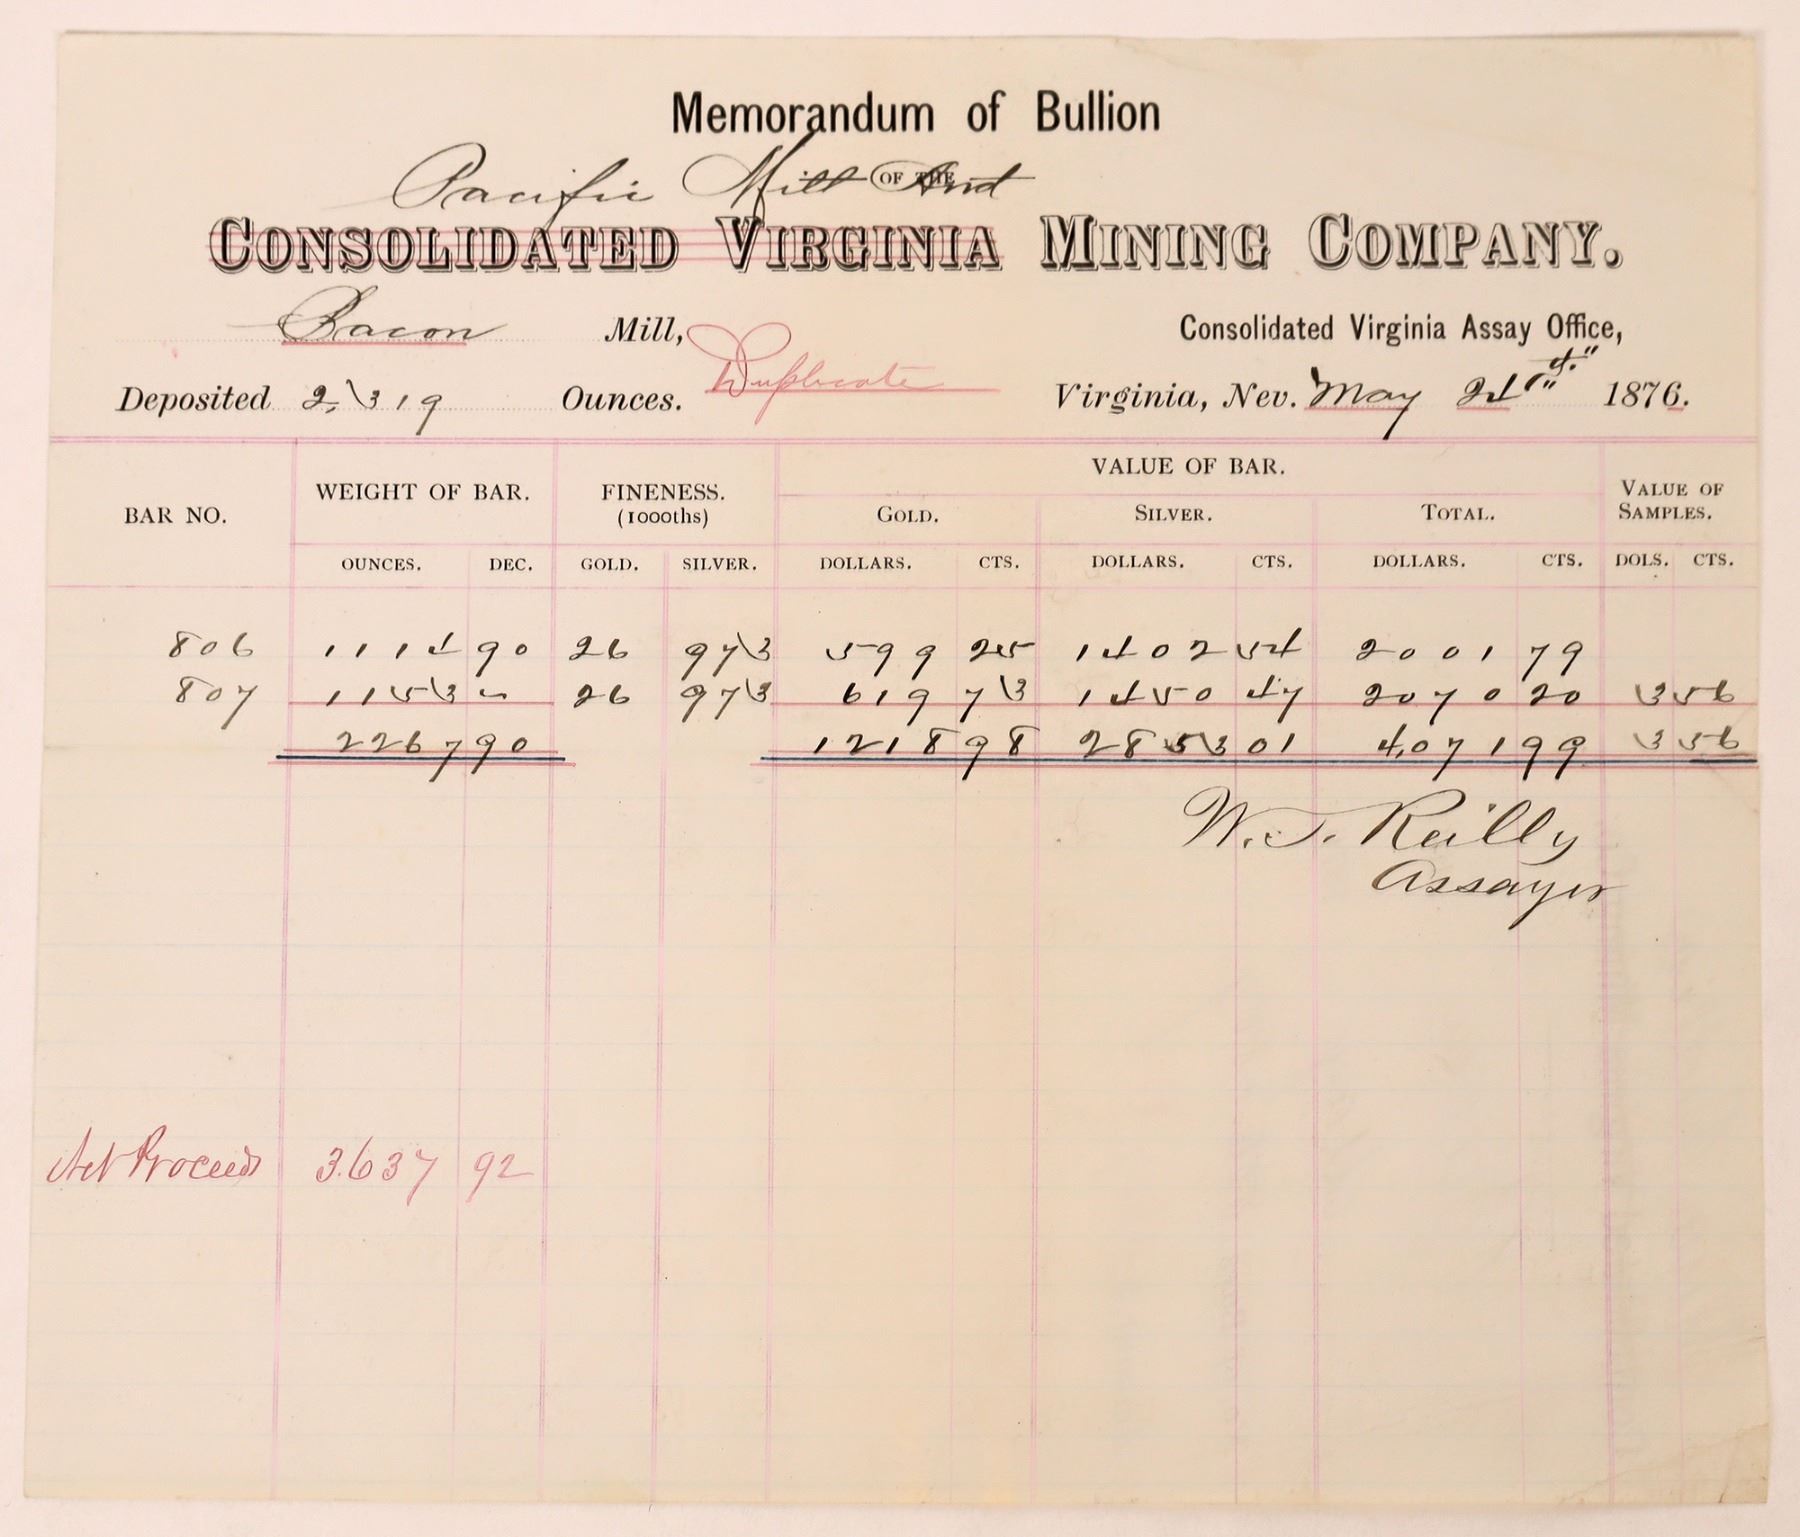 Memorandum of Bullion
Pacific Mill And
OF THE
CONSOLIDATED VIRGINIA MINING COMPANY.
Bacon Mill, Duplicate Consolidated Virginia Assay Office,
Deposited 2,319 Ounces. Virginia, Nev. May 24" 1876.
BAR NO. WEIGHT OF BAR. FINENESS. (1000ths) VALUE OF BAR. VALUE OF SAMPLES.
GOLD. SILVER. TOTAL.
OUNCES. DEC. GOLD. SILVER. DOLLARS. CTS. DOLLARS. CTS. DOLLARS. CTS. DOLS. CTS.
806 1114 90 26 973 599 25 1402 54 2001 79
807 1153 - 26 973 619 73 1450 47 2070 20 3 56
2267 90 1218 98 2853 01 4,071 99 3 56
W. T. Reilly
Assayer
Net Proceeds 3.637 92